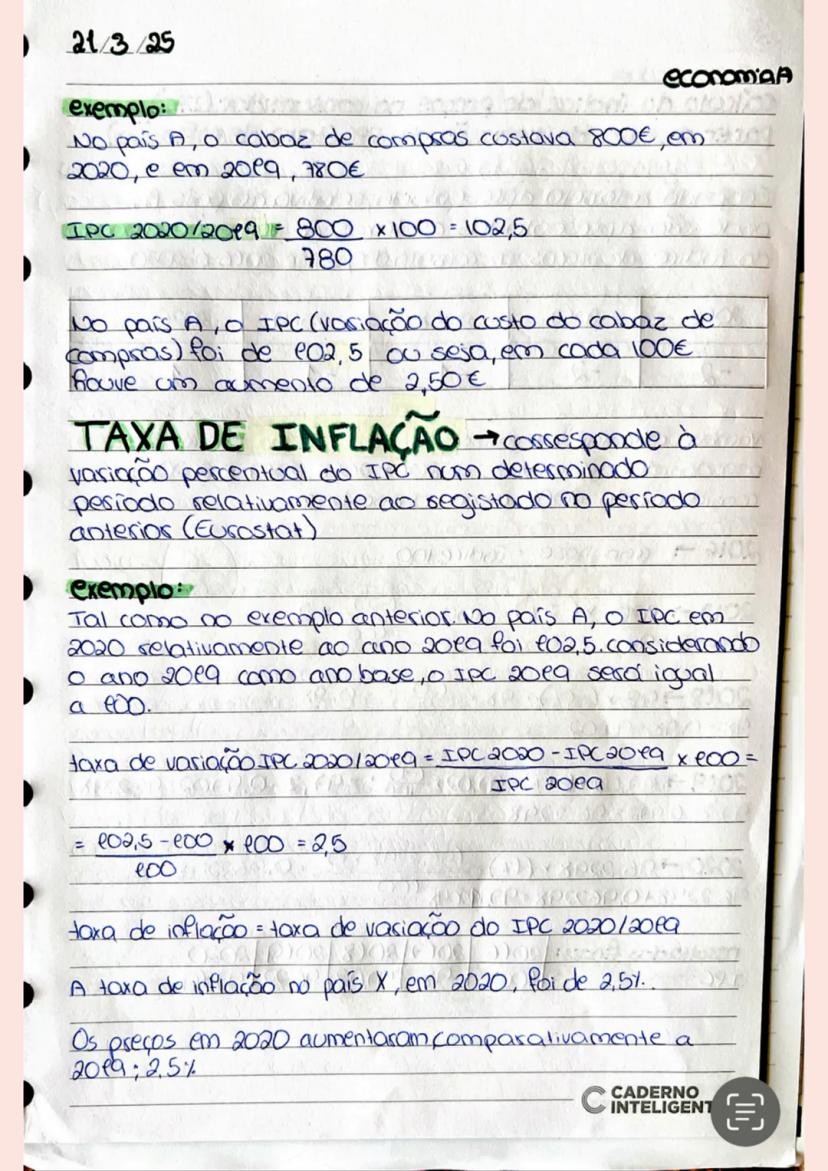 21/3/25
economia A
exemplo:
No país A, o cabaz de compras costava 800€, em
2020, e em 2019, 780€
IPC 2020/2019 = 800/780 x 100 = 102,5
No país A, o IPC (variação do custo do cabaz de
compras) foi de 102,5 ou seja, em cada 100€
houve um aumento de 2,50€
TAXA DE INFLAÇÃO → corresponde à
variação percentual do IPC num determinado
período relativamente ao registado no período
anterior (Eurostat)
exemplo:
Tal como no exemplo anterior. No país A, o IPC em
2020 relativamente ao ano 2019 foi 102,5. considerando
o ano 2019 como ano base, o IPC 2019 será igual
a 100.
taxa de variação IPC 2020/2019 = IPC 2020 - IPC 2019 / IPC 2019 x 100 =
= 102,5 - 100 / 100 x 100 = 2,5
taxa de inflação = taxa de variação do IPC 2020/2019
A taxa de inflação no país X, em 2020, foi de 2,5%.
Os preços em 2020 aumentaram, comparativamente a
2019; 2,5%
CADERNO
INTELIGENT